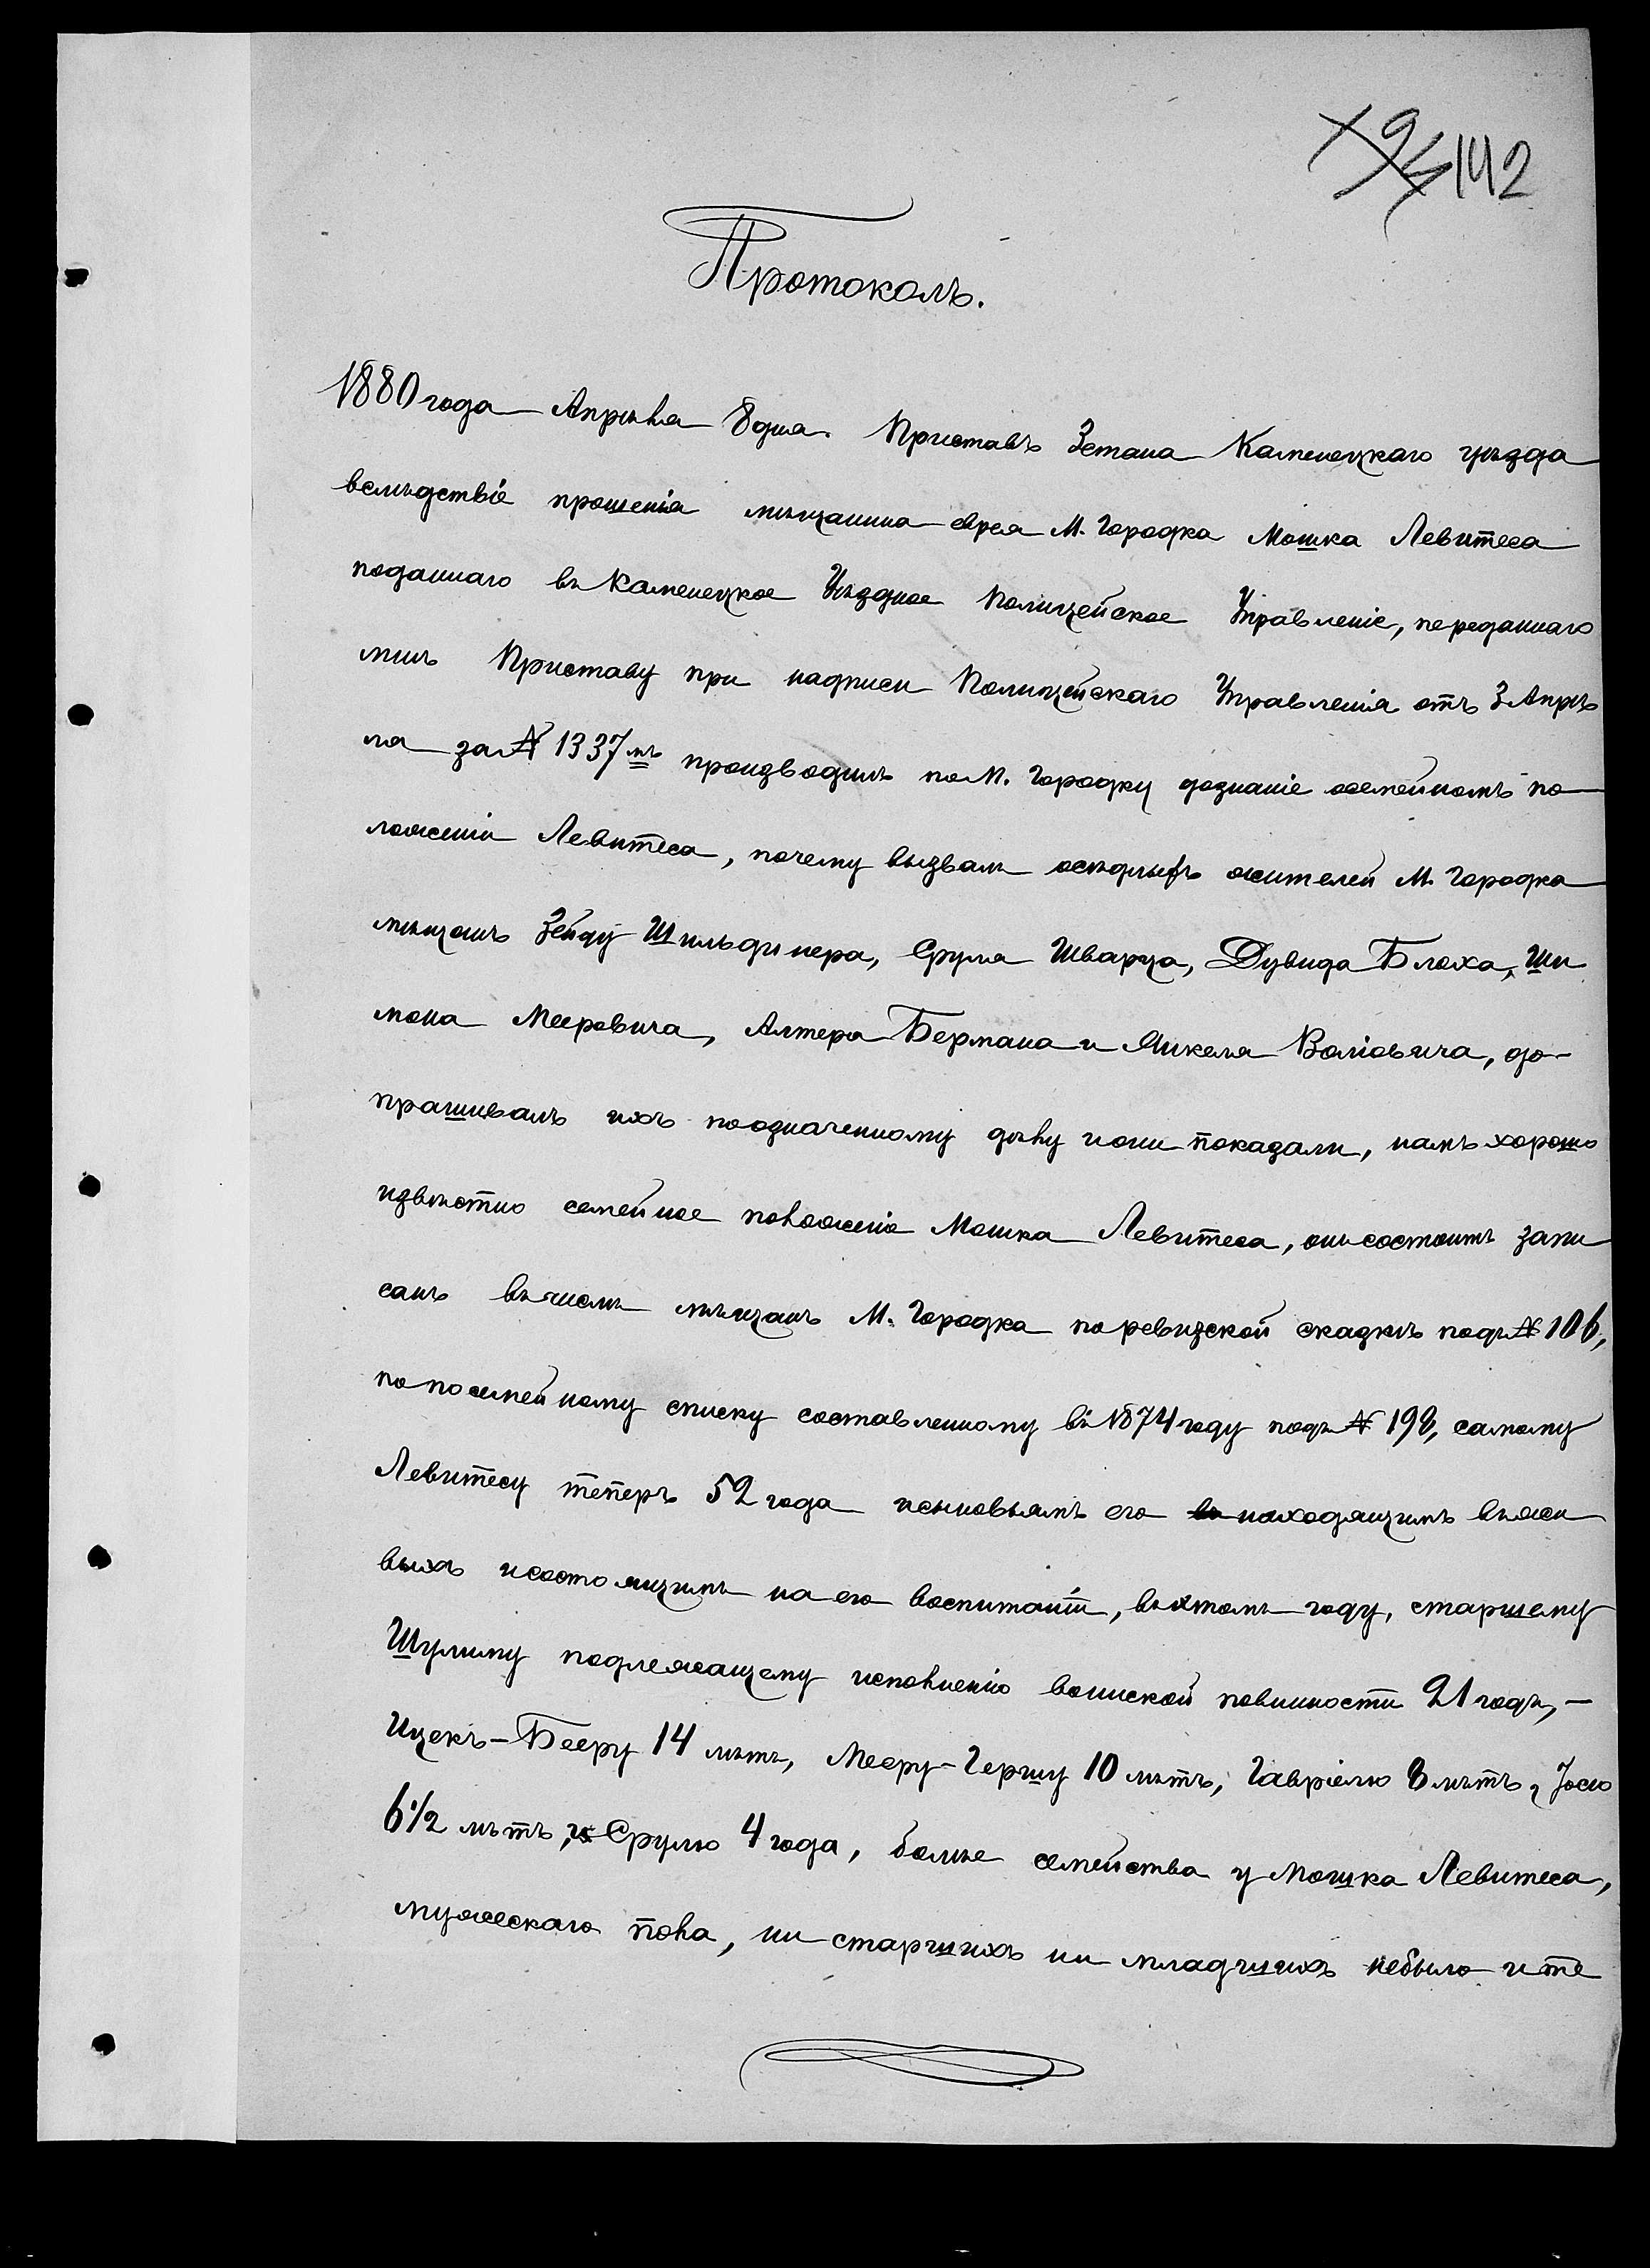 142
Протоколъ.
1880 года Апрѣля 8 дня. Приставъ 3 стана Каменецкаго уѣзда
вслѣдствіе прошенія мѣщанина еврея М. Городка Мошка Левитеса
поданнаго въ Каменецкое Уѣздное Полицейское Управленіе, переданнаго
мнѣ Приставу при надписи Полицейскаго Управленія отъ 3 Апрѣ
ля за № 1337мъ производилъ по М. Городку дознаніе о семейномъ по-
ложеніи Левитеса, почему вызвалъ осѣдлыхъ жителей М. Городка
мѣщанъ Зейду Шильдинера, Срулa Шварца, Дувида Блоха, Ши
мона Мееровича, Алтера Бермана и Янкеля Воліовича, до-
прашивалъ ихъ по означенному дѣлу и они показали, намъ хорошо
извѣстно семейное положеніе Мошка Левитеса, онъ состоитъ запи
санъ въ числѣ мѣщанъ М. Городка по ревизской сказкѣ подъ № 106,
по посемейному списку составленному въ 1874 году подъ № 198, самому
Левитесу теперъ 52 года и сыновьямъ его находящимъ въ жи
выхъ и состоящимъ на его воспитаніи, въ этомъ году, старшему
Шулиму подлежащему исполненію воинской повинности 21 годъ, –
Ицекъ-Бееру 14 лѣтъ, Мееру-Гершу 10 лѣтъ, Гавріелю 8 лѣтъ, Іосю
6 1/2 лѣтъ, и Срулю 4 года, болѣе семейства у Мошка Левитеса,
мужескаго пола, ни старшихъ ни младшихъ небыло и те